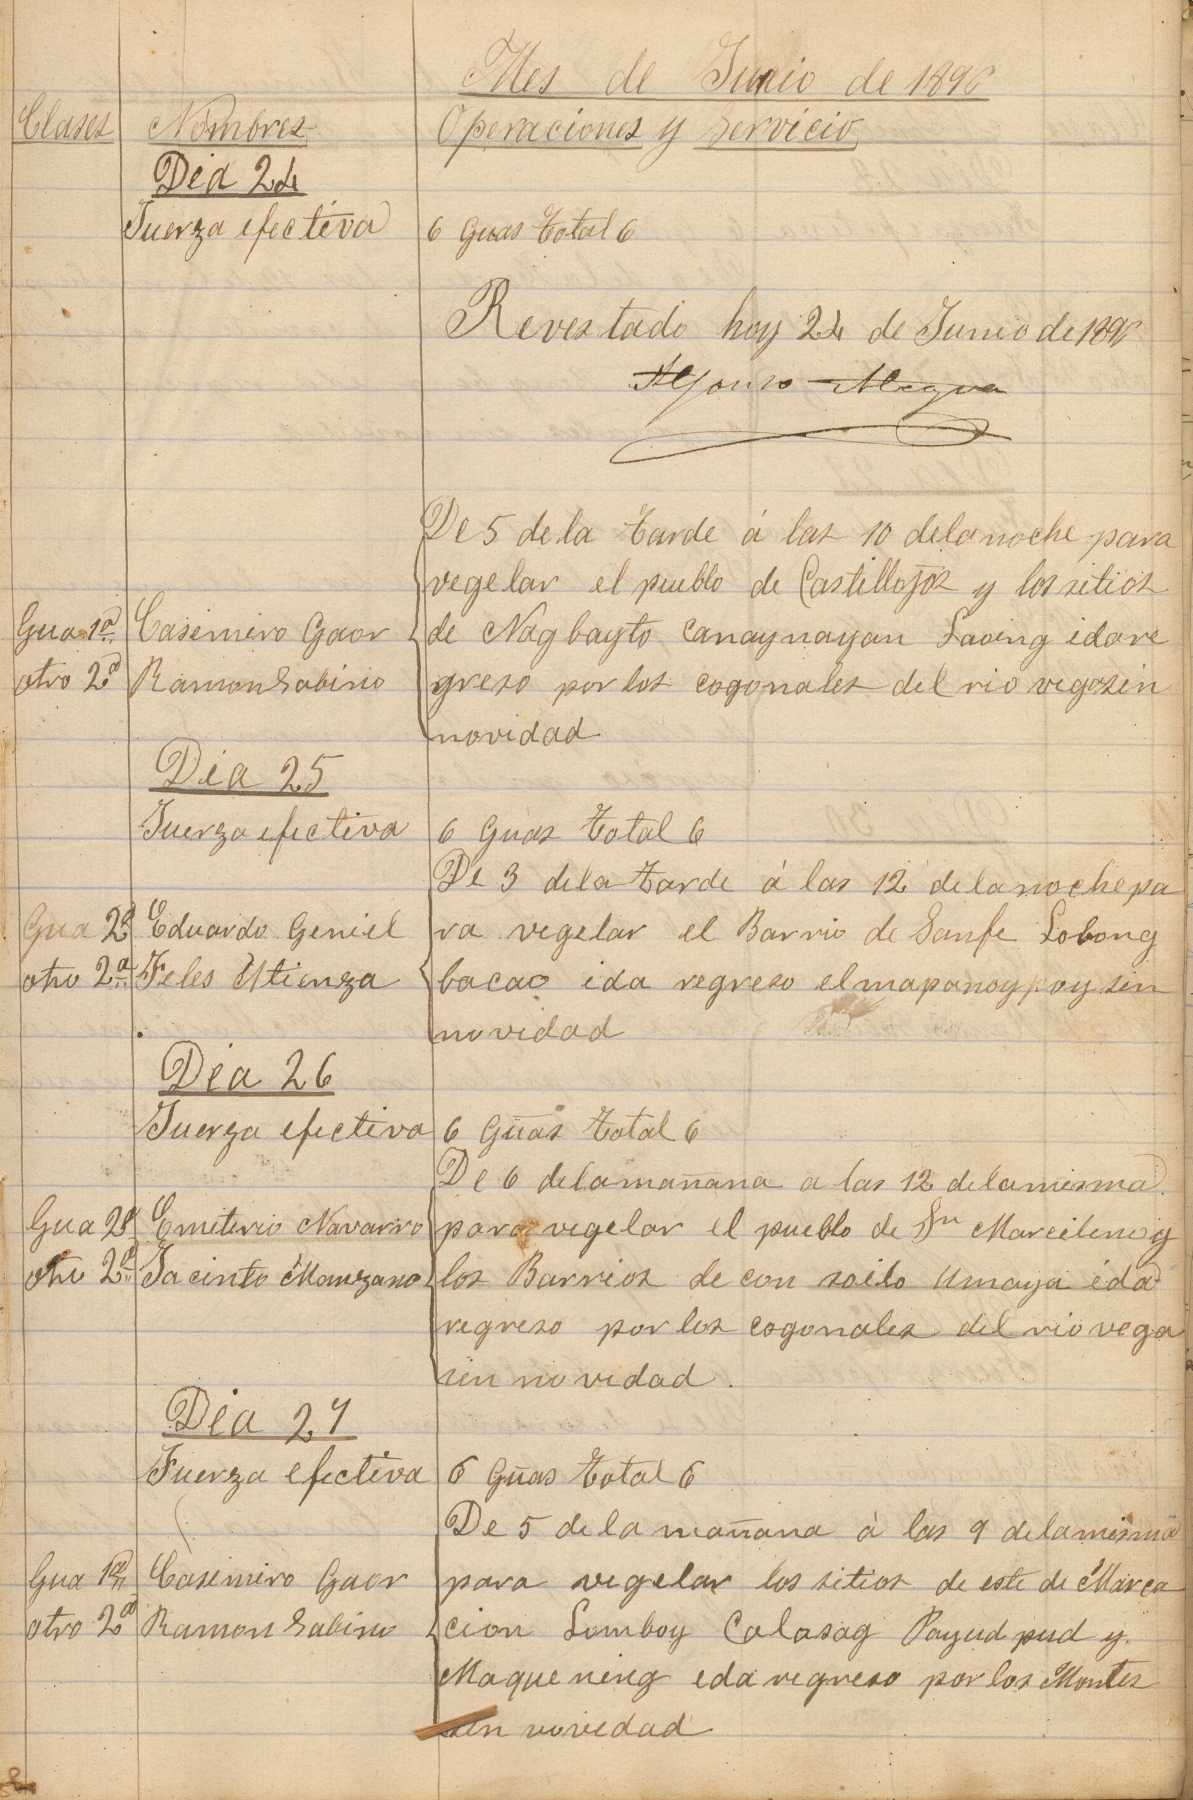 Mes de Junio de 1896
Clases Nombres Operaciones y Servicio
Dia 24
Fuerza efectiva 6 Guas Total 6
Revestado hoy 24 de Junio de 1896
Alfonso Alegva
De 5 de la tarde á las 10 dela noche para
vegelar el pueblo de Castillojos y los sitios
Gua 1ª Casemiro Gaor de Nagbayto Canaynayan Laoing ida re
otro 2ª Ramon Sabino greso por los cogonales del rio vega sin
novidad
Dia 25
Fuerza efectiva 6 Guas Total 6
De 3 dela tarde á las 12 dela noche pa
Gua 2ª Eduardo Geniel ra vegelar el Barrio de Sanfe Lobong
otro 2ª Feles Utienza bacao ida regreso el mapanoypoy sin
novidad
Dia 26
Fuerza efectiva 6 Guas Total 6
De 6 dela mañana a las 12 dela misma
Gua 2ª Emiterio Navarro para vegelar el pueblo de Sn Marcelino y
otro 2ª Jacinto Manzano los Barrios de con soilo Umaya ida
regreso por los cogonales del rio vega
sin novidad.
Dia 27
Fuerza efectiva 6 Guas Total 6
De 5 de la mañana á las 9 dela misma
Gua 1ª Casemiro Gaor para vegelar los sitios de este de Marca
otro 2ª Ramon Sabino cion Lomboy Calasag Payudpud y
Maquening eda regreso por los Montes
sin novedad